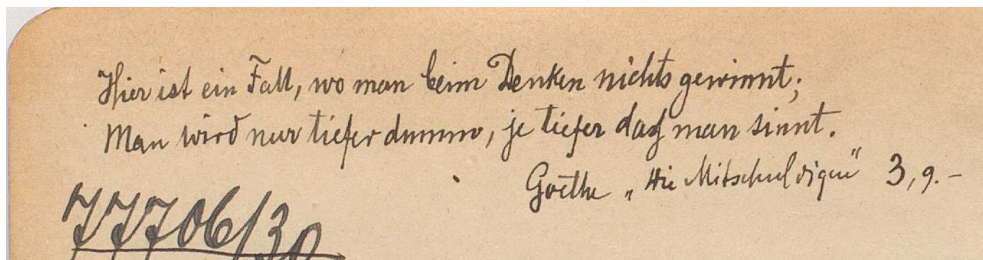 Hier ist ein Fall, wo man beim Denken nichts gewinnt;
Man wird nur tiefer dumm, je tiefer daß man sinnt.
Goethe „Die Mitschuldigen" 3, 9. –
77706/30